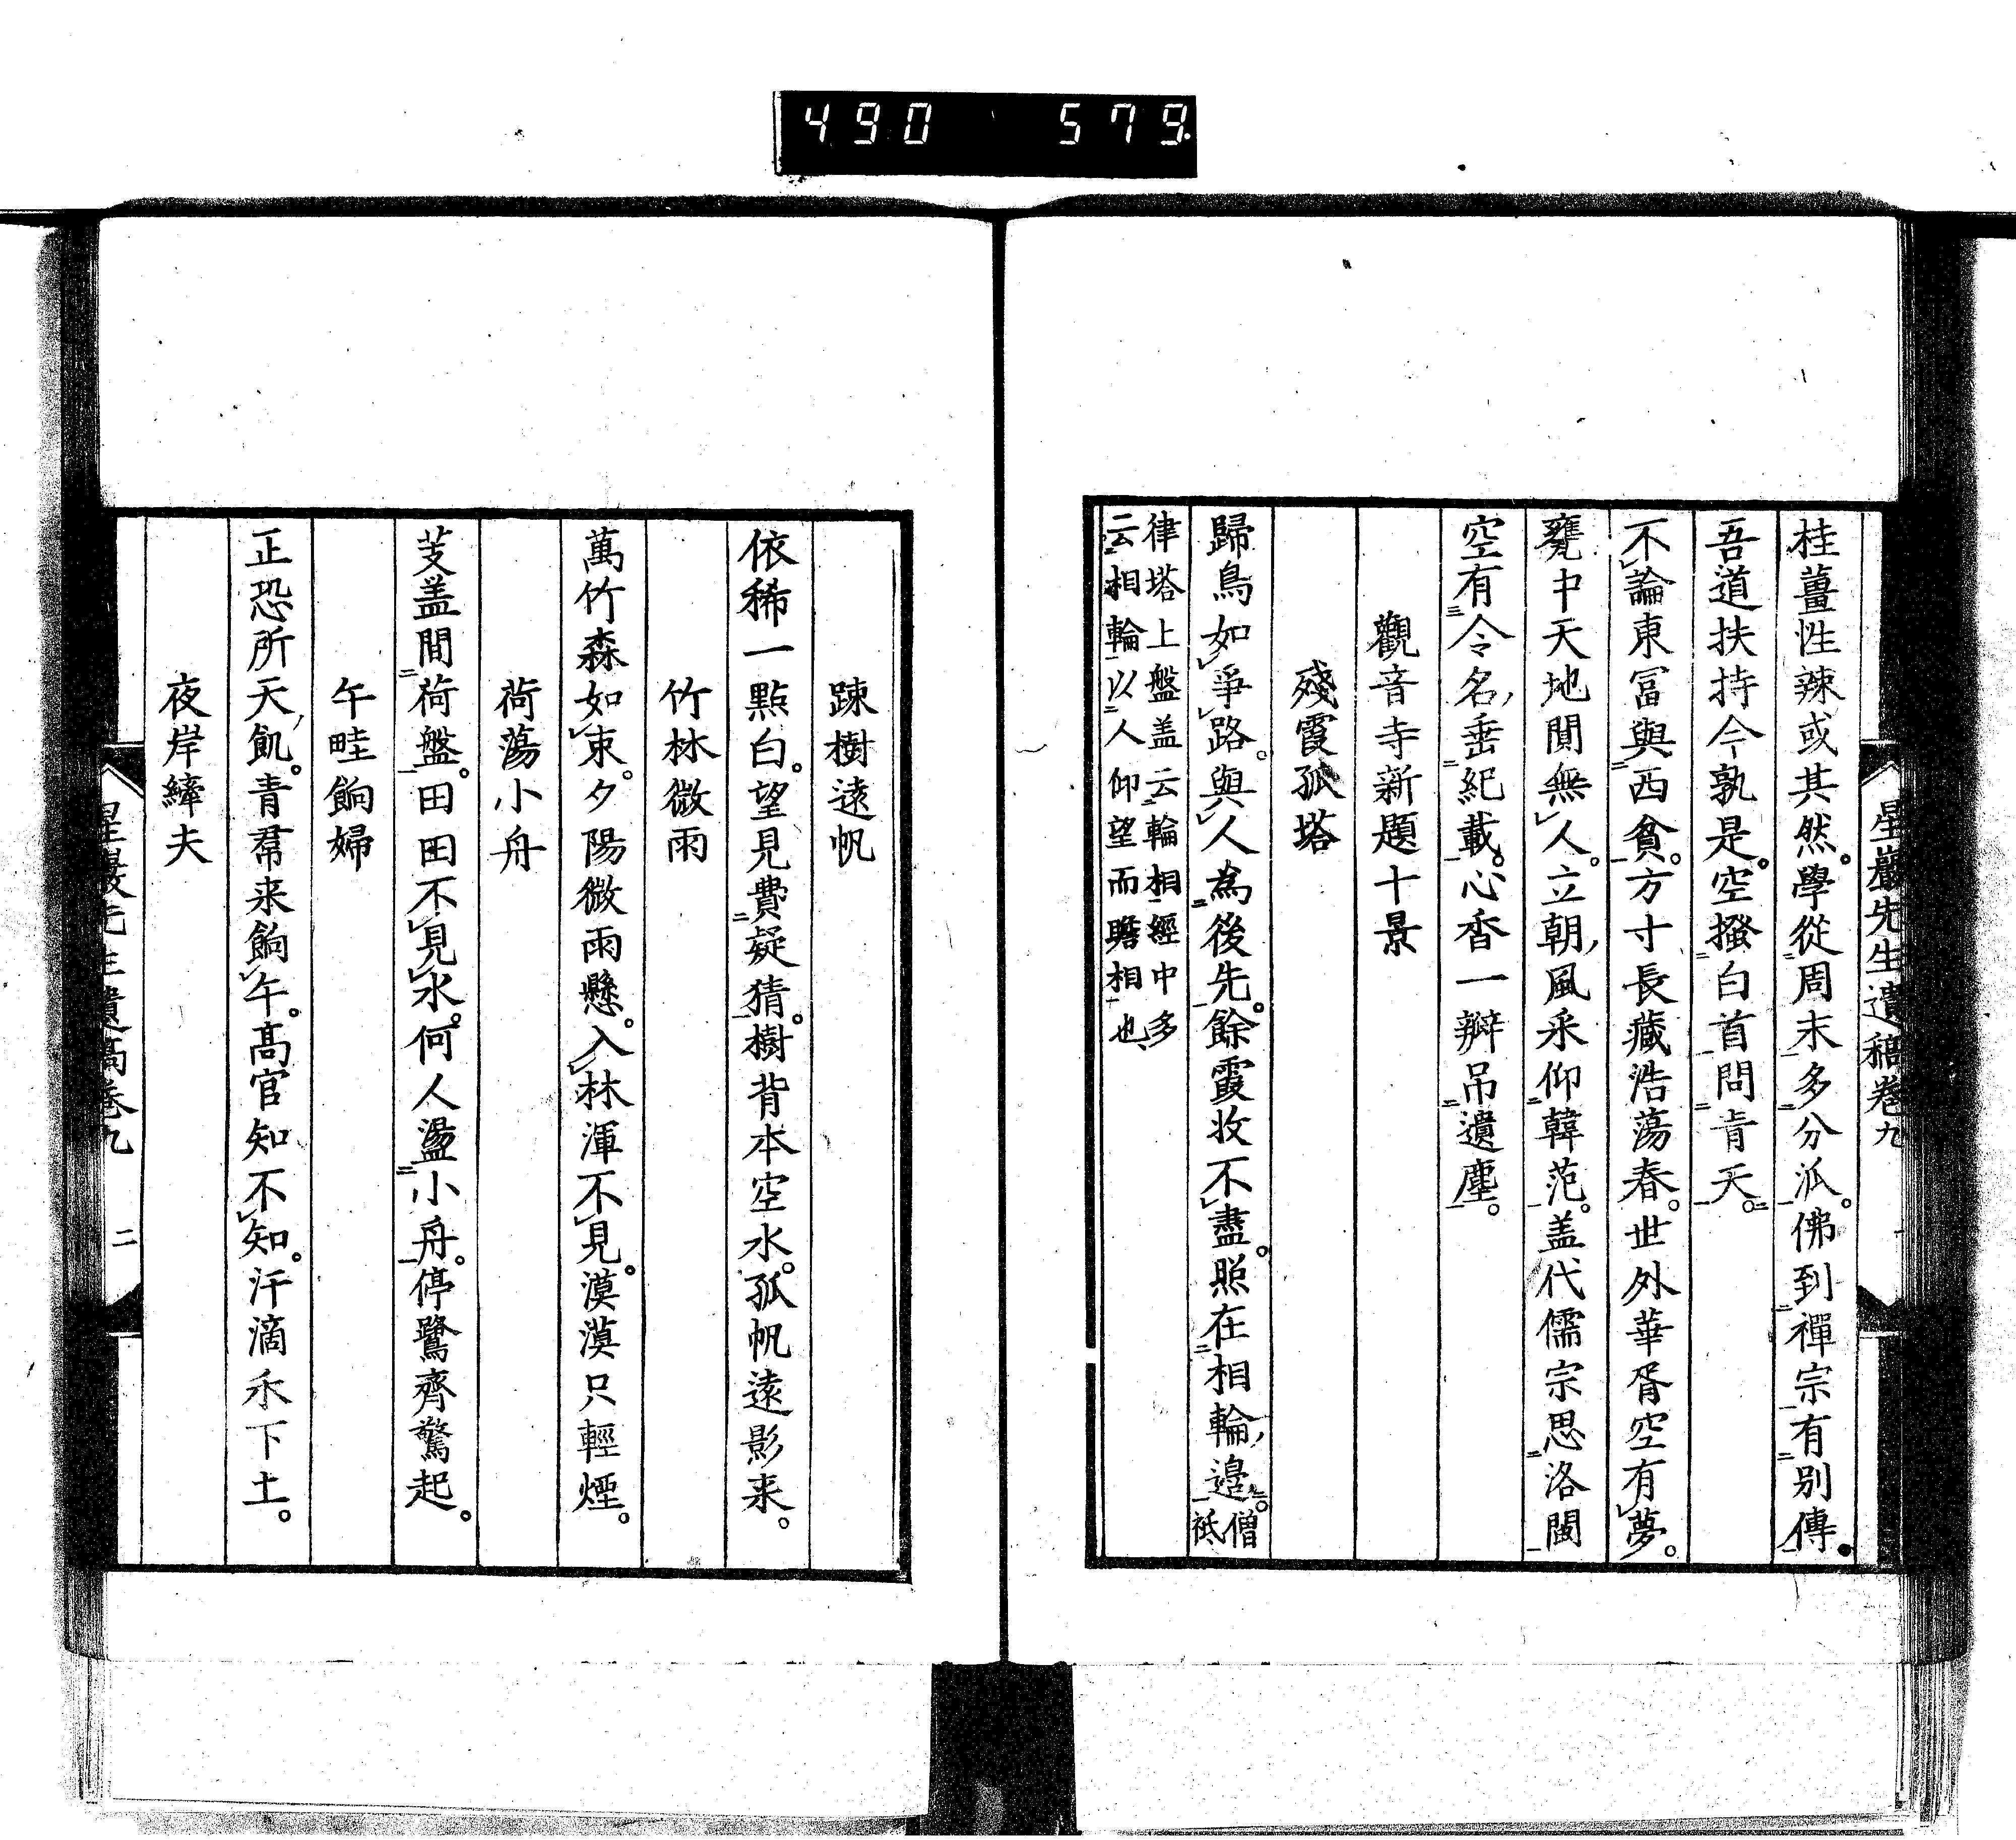 490 579
星巖先生遺稿卷九
桂薑性辣或其然。學從周末多分派。佛到禪宗有別傳。
吾道扶持今孰是。空搔白首問肯天。
不論東冨與西貧。方寸長藏浩蕩春。世外華胥空有夢。
甕中天地閴無人。立朝風采仰韓范。盖代儒宗思洛閩
空有令名垂紀載。心香一辧吊遺塵。
觀音寺新題十景
殘霞孤塔
歸鳥如爭路。與人為後先。餘霞收不盡。照在相輪邊。僧祇
律塔上盤盖云輪相經中多
云相輪以人仰望而瞻相也
踈樹遠帆
依稀一點白。望見費疑猜。樹背本空水。孤帆遠影来。
竹林微雨
萬竹森如束。夕陽微雨懸。入林渾不見。漠漠只輕煙。
荷蕩小舟
芰盖間荷盤。田田不見水。何人盪小舟。停鷺齊驚起。
午畦餉婦
正恐所天飢。青帬来餉午。髙官知不知。汗滴禾下土。
夜岸縴夫
星巖先生遺稿卷九 二